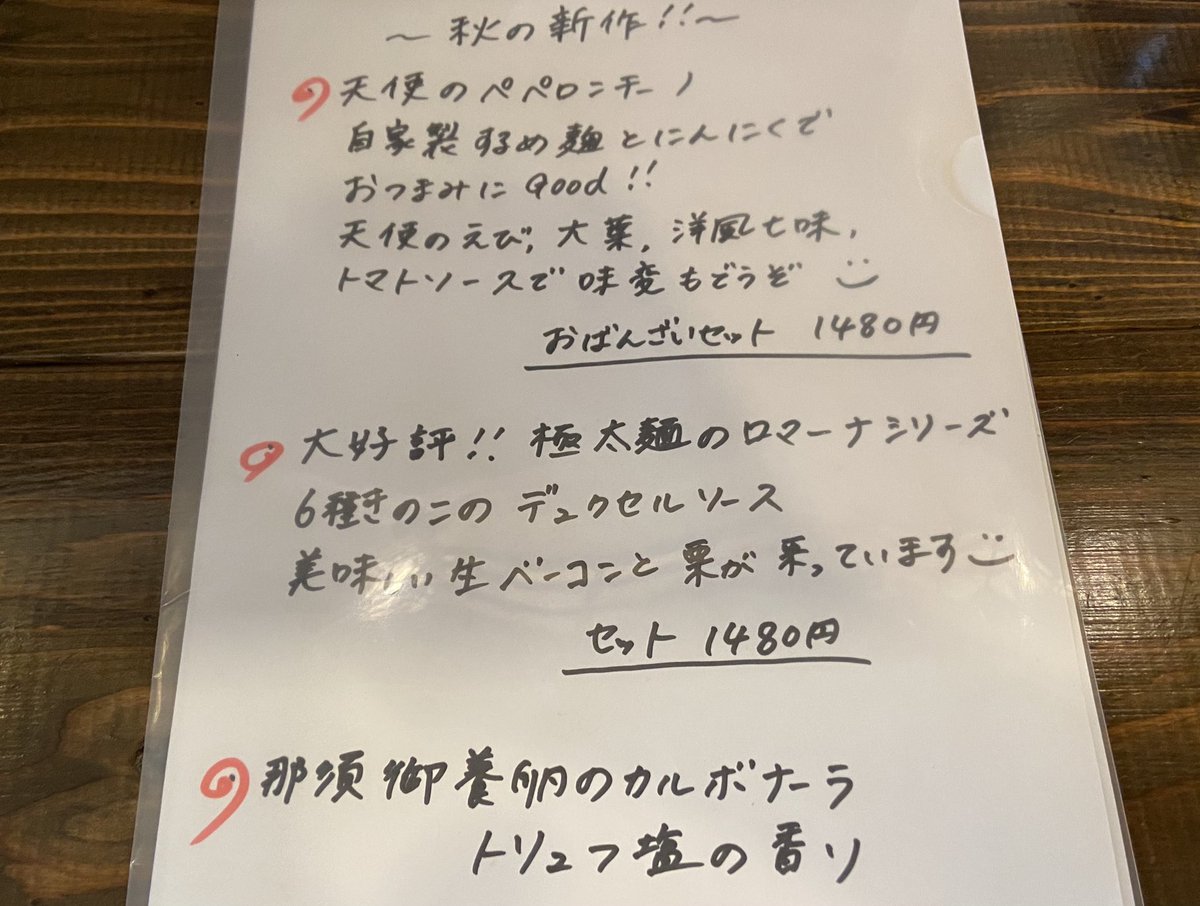 ～秋の新作!!～
天使のペペロンチーノ
自家製するめ麺とにんにくで
おつまみにGood!!
天使のえび,大葉,洋風七味,
トマトソースで味変もどうぞ
おばんざいセット 1480円
大好評!!極太麺のロマーナシリーズ
6種きのこのデュクセルソース
美味しい生ベーコンと栗が乗っています
セット 1480円
那須御養卵のカルボナーラ
トリュフ塩の香り